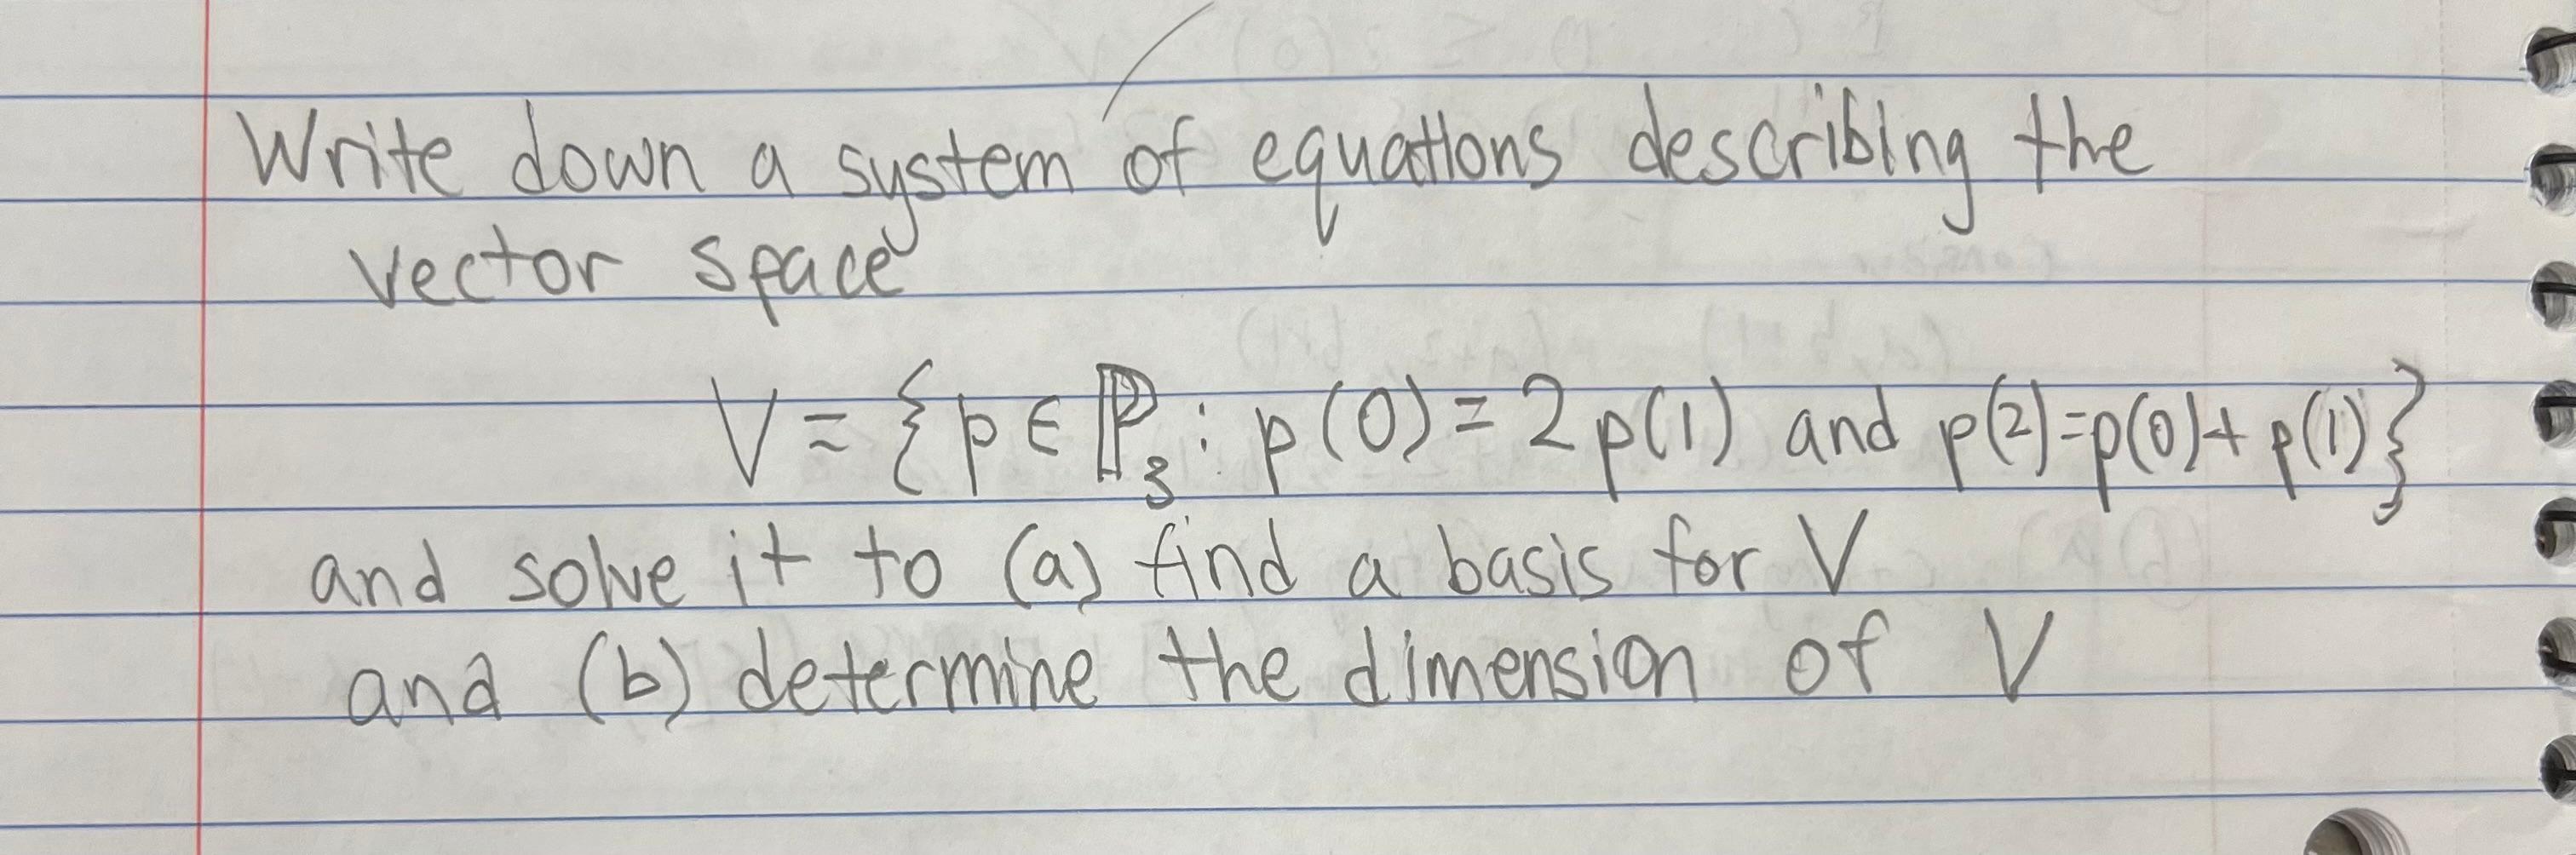 Write down a system of equations describing the
vector space
V = {p ∈ ℙ₃ : p(0) = 2p(1) and p(2)=p(0)+p(1)}
and solve it to (a) find a basis for V
and (b) determine the dimension of V